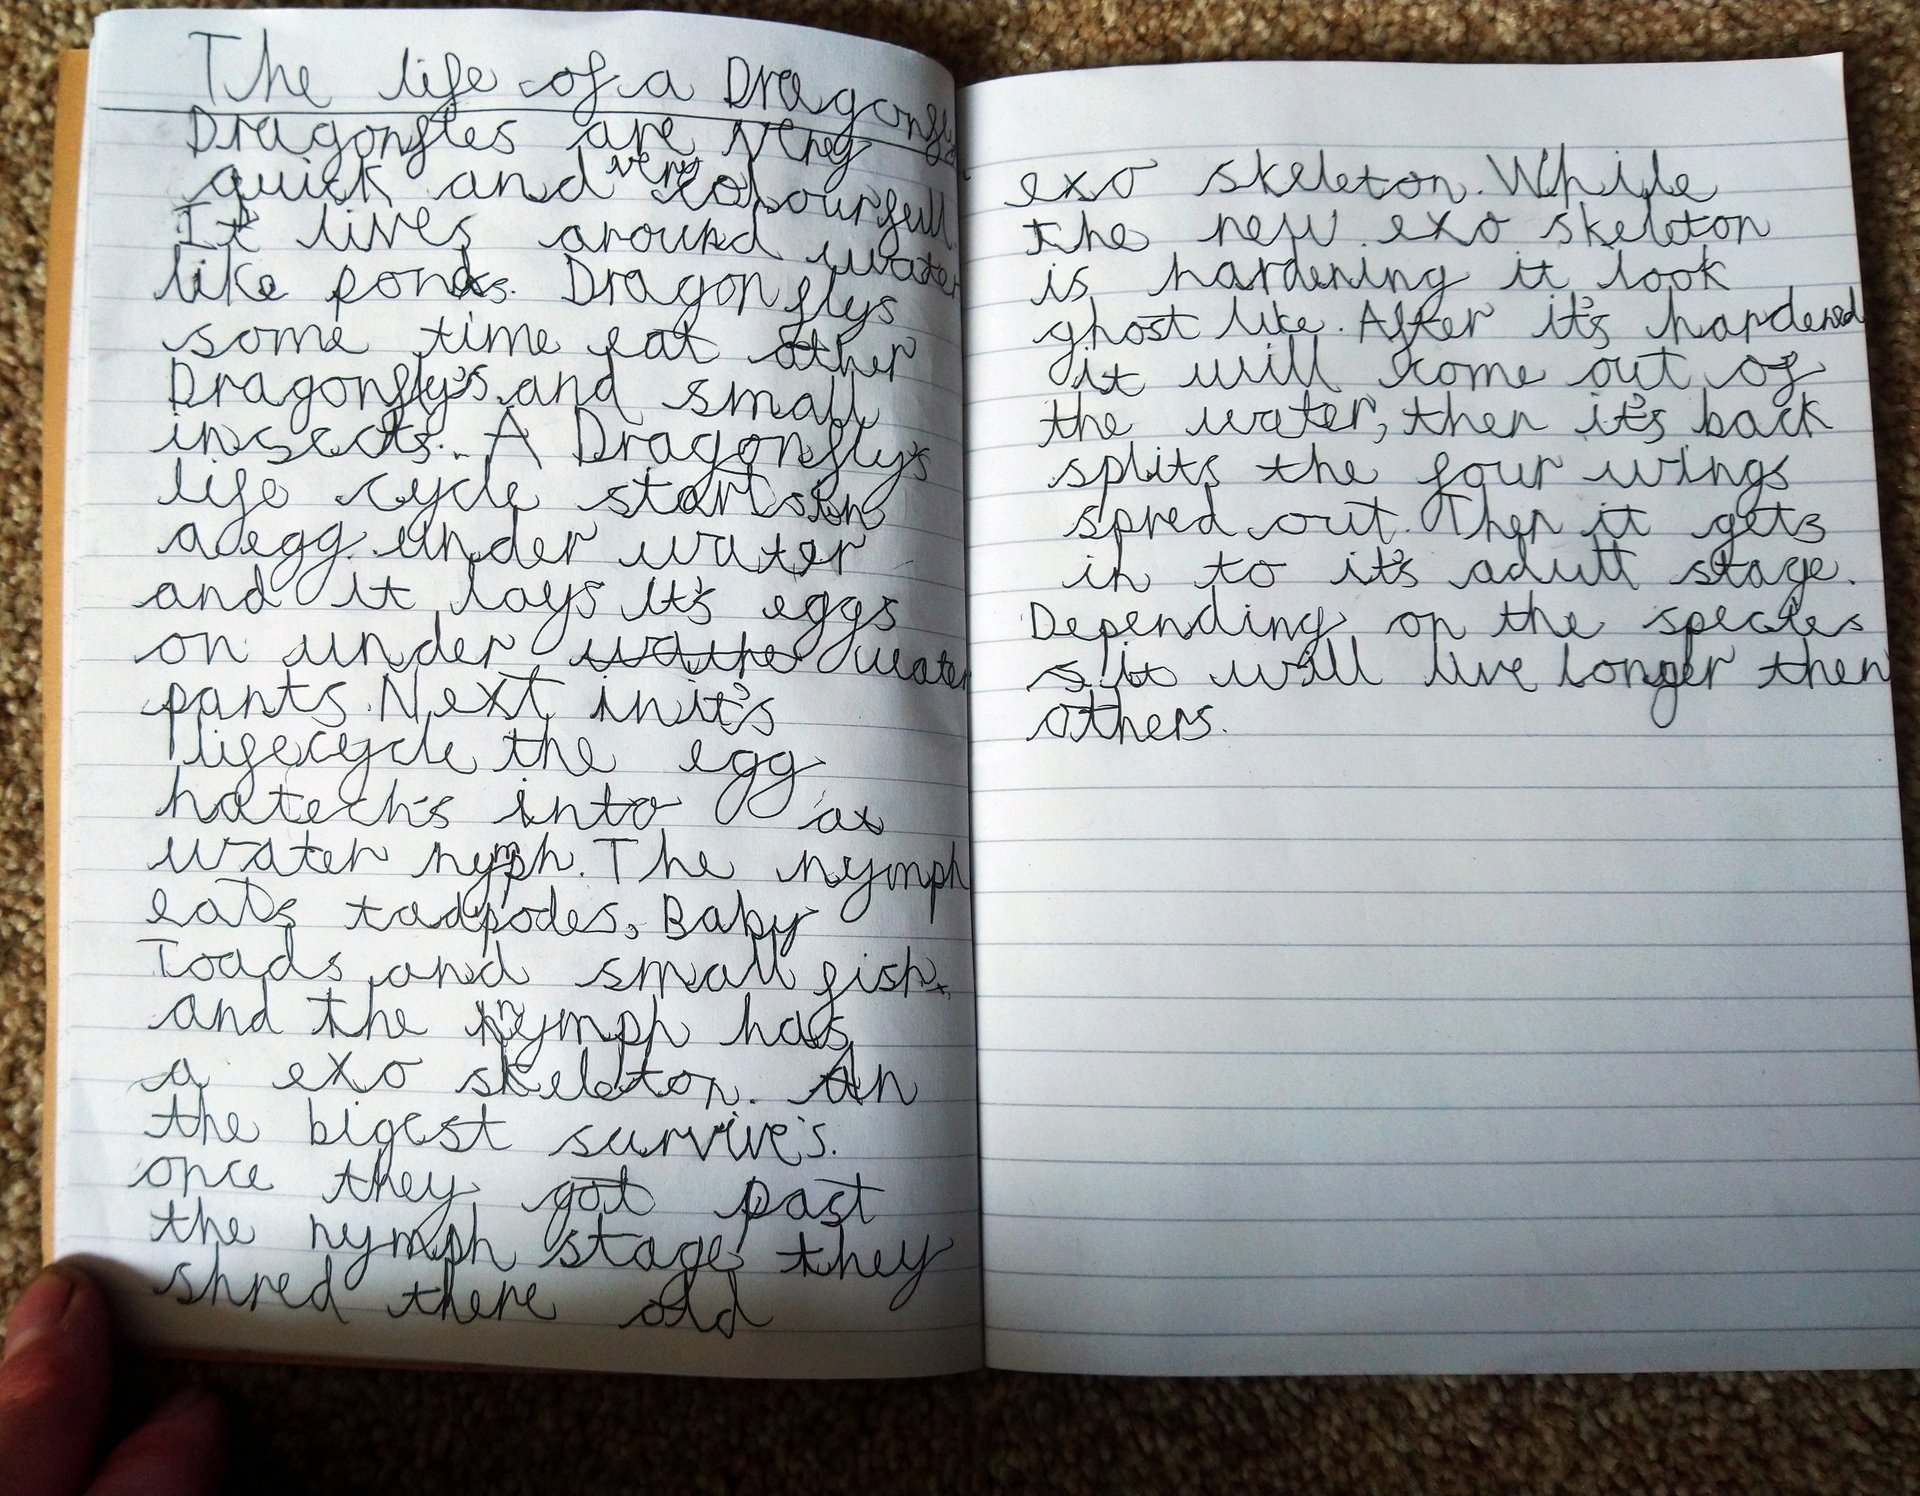 The life of a Dragonfly
Dragonfles are very
quick and very colourfull.
It lives around water
like ponds. Dragon flys
some time eat other
Dragonfly's and small
insects. A Dragonfly's
life cycle starts in
a egg under water
and it lays it's eggs
on under water
pants. Next in it's
lifecycle the egg
hatech's into a
water nymph. The nymph
eats tadpodes, Baby
Toads and small fish.
and the nymph has
a exo skeleton. An
the bigest survive's.
once they got past
the nymph stage they
shred there old
exo skeleton. While
the new exo skeleton
is hardening it look
ghost like. After it's hardened
it will come out of
the water, then it's back
splits the four wings
spred out. Then it gets
in to it's adult stage.
Depending on the species
it will live longer then
others.